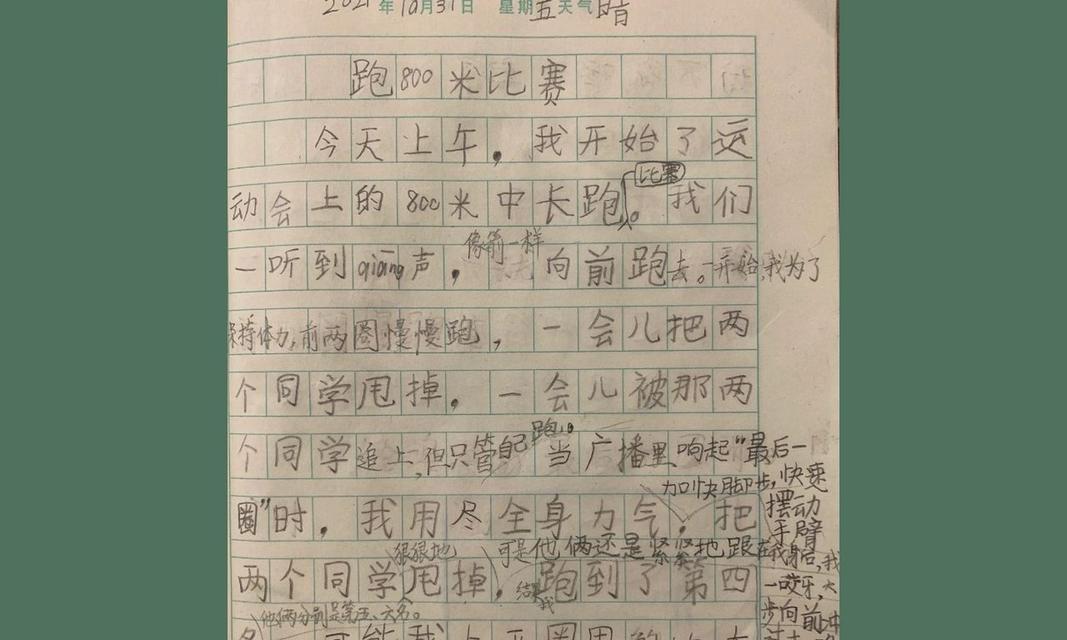 2021年10月31日 星期五天气晴
跑800米比赛
今天上午，我开始了运
动会上的800米中长跑比赛。我们
一听到qiāng声，像箭一样向前跑去。一开始，我为了
保持体力，前两圈慢慢跑，一会儿把两
个同学甩掉，一会儿被那两
个同学追上，但只管自己跑。当广播里响起“最后一
圈”时，我用尽全身力气，加快脚步，快速摆动手臂，把
两个同学狠狠地甩掉，可是他俩还是紧紧地跟在我身后，我一咬牙，大步向前冲
结果我跑到了第四
他俩分别是第五、六名。